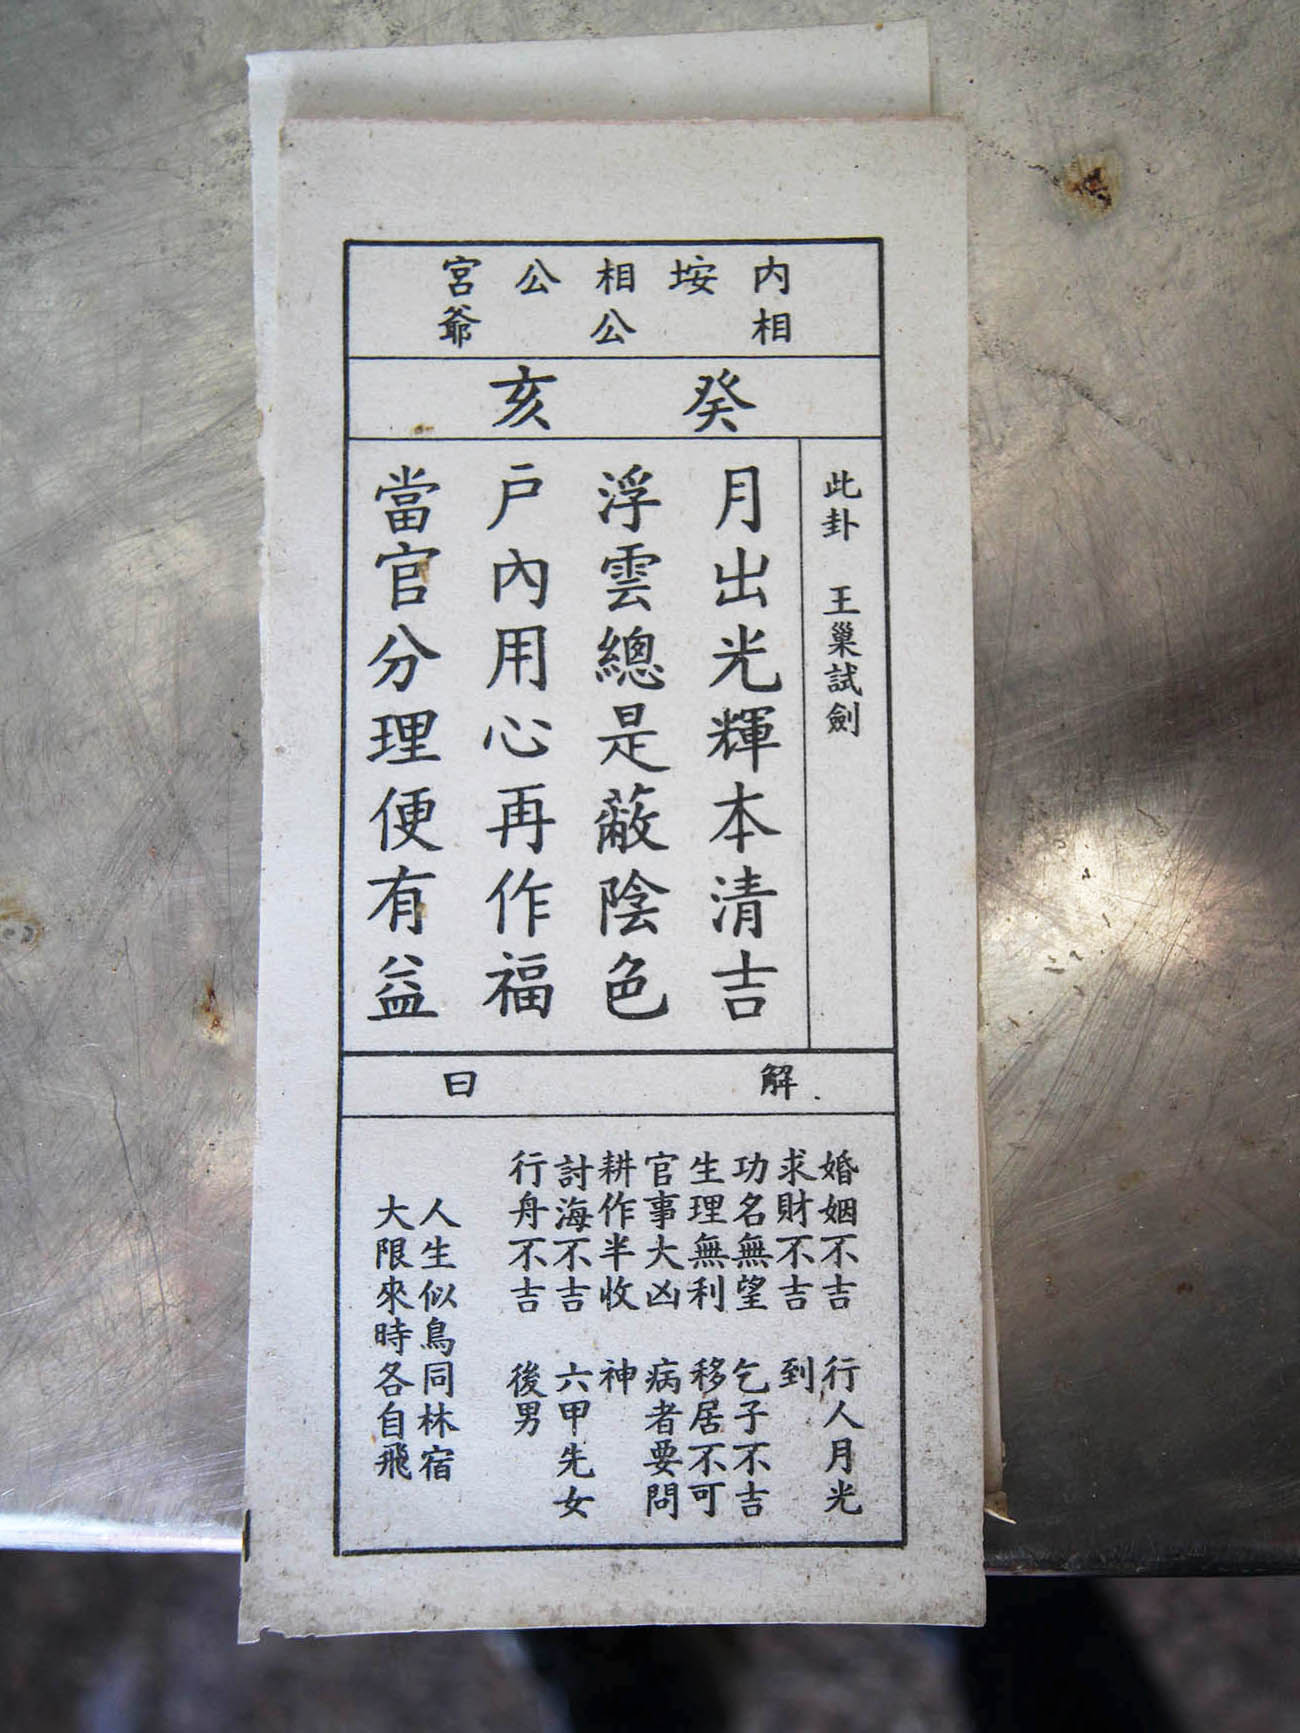 内垵相公宮
相公爺
癸亥
此卦 王巢試劍
月出光輝本清吉
浮雲總是蔽陰色
戶內用心再作福
當官分理便有益
解曰
婚姻不吉
求財不吉
功名無望
生理無利
官事大凶
耕作半收
討海不吉
行舟不吉
行人月光
到
乞子不吉
移居不可
病者要問
神
六甲先女
後男
人生似鳥同林宿
大限來時各自飛